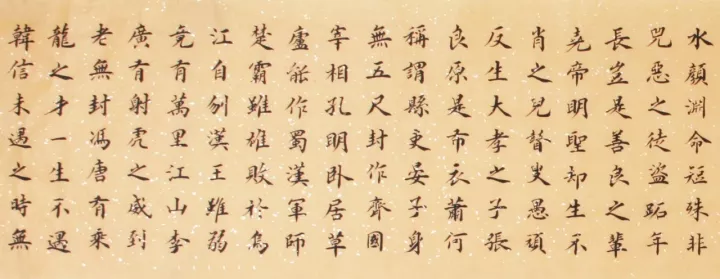 水顏淵命短殊非
兇惡之徒盜跖年
長豈是善良之輩
堯帝明聖却生不
肖之兒瞽叟愚頑
反生大孝之子張
良原是布衣蕭何
稱謂縣吏晏子身
無五尺封作齊國
宰相孔明卧居草
廬能作蜀漢軍師
楚霸雖雄敗於烏
江自刎漢王雖弱
竟有萬里江山李
廣有射虎之威到
老無封馮唐有乘
龍之才一生不遇
韓信未遇之時無